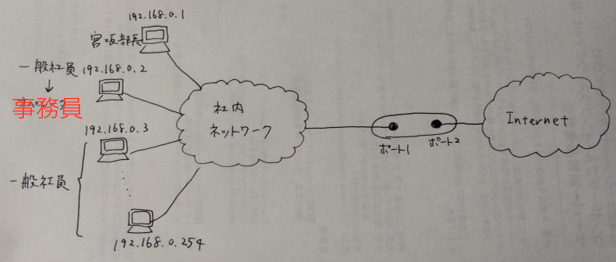 192.168.0.1
宮坂部長
一般社員
192.168.0.2
事務員
192.168.0.3
一般社員
192.168.0.254
社内
ネットワーク
ポート1
ポート2
Internet